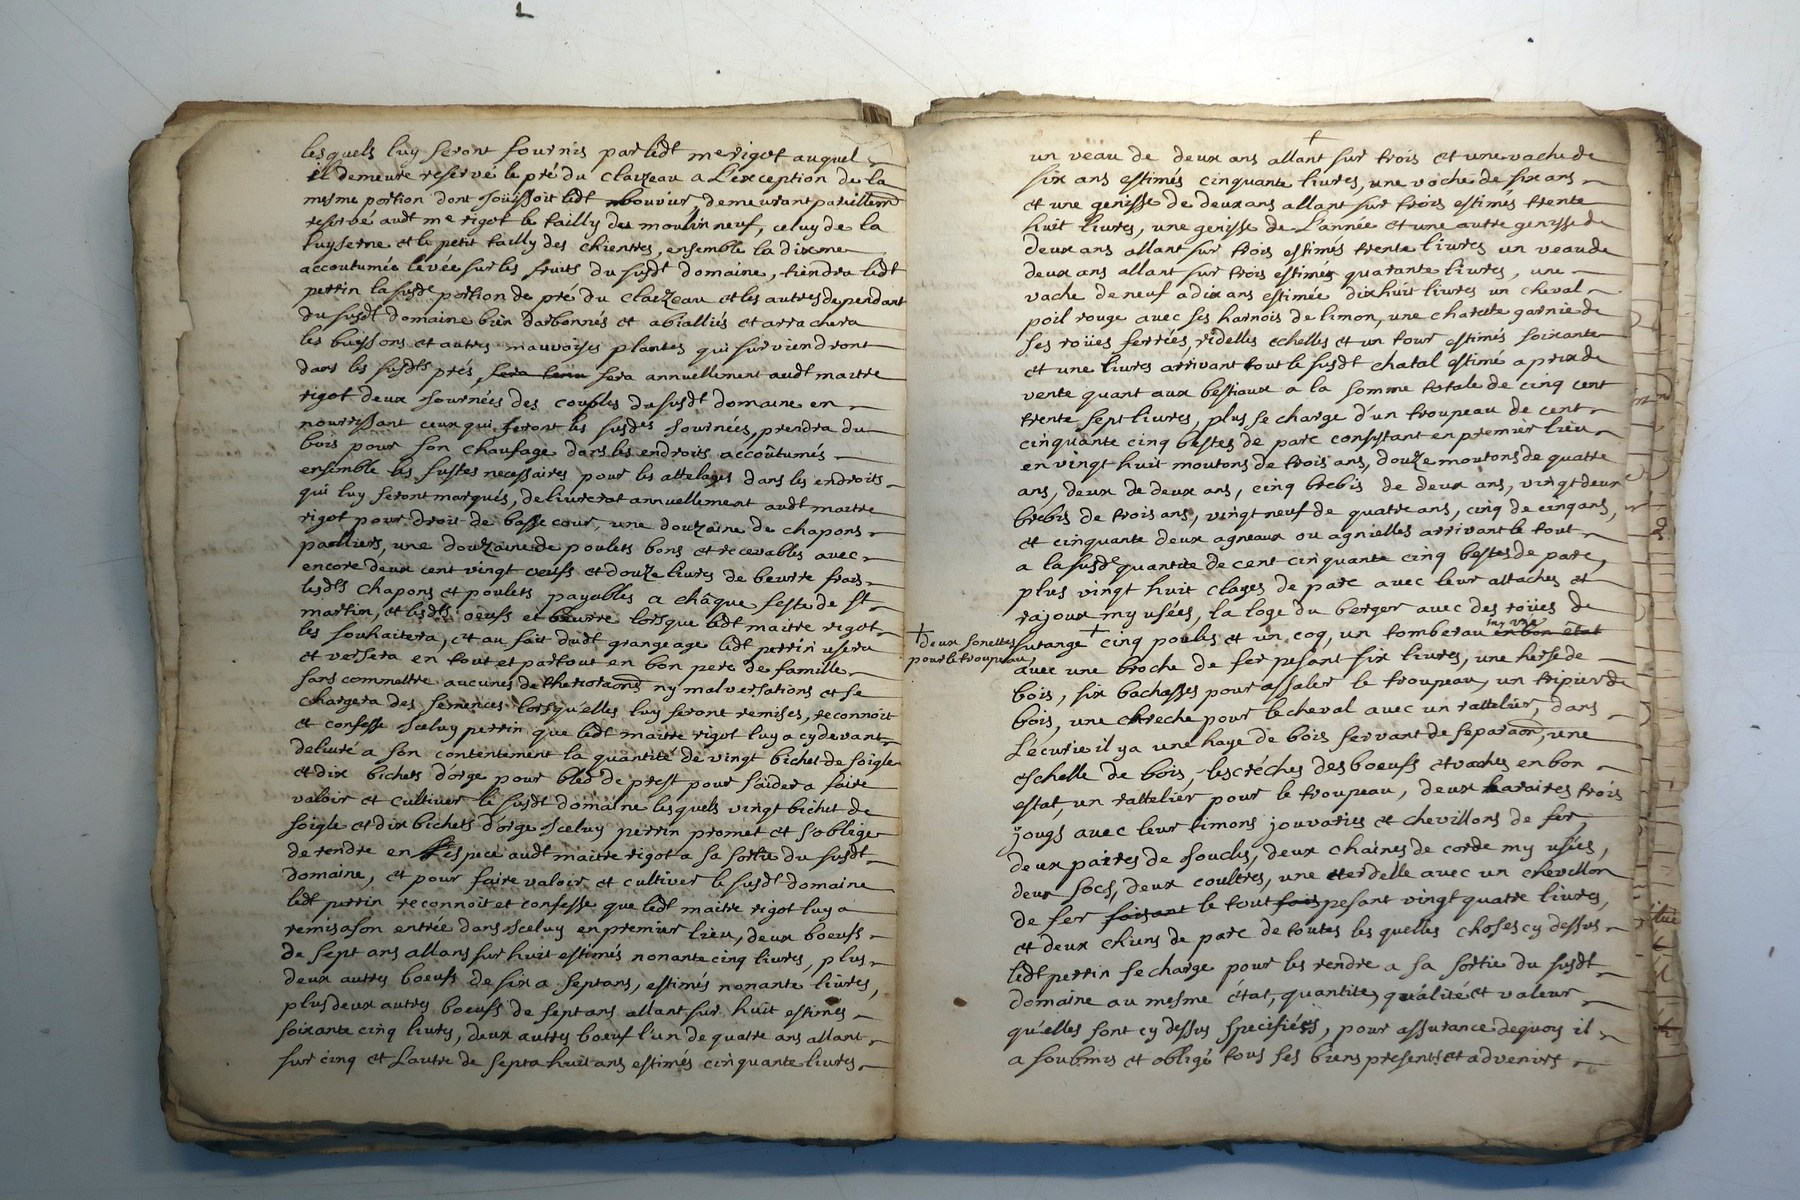 lesquels luy seront fournis par ledt me rigot auquel
il demeure reservé le pré du claizeau a L'exception de la
mesme portion dont joüissoit ledt bouvier, demeurant pareillemt
reservé audt me rigot le tailly du moulin neuf, celuy de la
luyserne et le petit tailly des chientres, ensemble la dixme
accoutumée levée sur les fruits du susdt domaine, tiendra ledt
perrin la susde portion de pré du claizeau et les autres dependant
du susdt domaine bien darbonnés et abialliés et arrachera
les buissons et autres mauvaises plantes qui surviendront
dans les susdts prés, sera tenu fera annuellement audt maitre
rigot deux journées des couples du susdt domaine en
nourrissant ceux qui feront les susdes journées, prendra du
bois pour son chaufage dans les endroits accoûtumés
ensemble les fustes necessaires pour les attelages dans les endroits
qui luy seront marqués, delivrerat annuellement audt maitre
rigot pour droit de basse cour, une douzaine de chapons
pailliers, une douzaine de poulets bons et recevables avec
encore deux cent vingt oeufs et douze livres de beurre frais
lesdts chapons et poulets payables a châque feste de st
martin, et lesdts oeufs et beurre lorsque ledt maitre rigot
les souhaitera, et au fait dudt grangeage ledt perrin usera
et versera en tout et partout en bon pere de famille
sans commettre aucunes detheriora̅o̅n̅s ny malversations et se
chargera des semences lorsqu'elles luy seront remises, reconnoit
et confesse iceluy perrin que ledt maitre rigot luy a cy devant
delivré a son contentement la quantité de vingt bichet de soigle
et dix bichets d'orge pour bled de prest pour s'aider a faire
valoir et cultiver le susdt domaine lesquels vingt bichet de
soigle et dix bichets d'orge iceluy perrin promet et s'oblige
de rendre en espece audt maitre rigot a sa sortie du susdt
domaine, et pour faire valoir et cultiver le susdt domaine
ledt perrin reconnoit et confesse que ledt maitre rigot luy a
remis a son entrée dans iceluy en premier lieu, deux boeufs
de sept ans allans sur huit estimés nonante cinq livres, plus
deux autres boeufs de six a sept ans, estimés nonante livres,
plus deux autres boeufs de sept ans allant sur huit estimés
soixante cinq livres, deux autres boeuf l'un de quatre ans allant
sur cinq et L'autre de sept a huit ans estimés cinquante livres
un veau de deux ans allant sur trois et une vache de
six ans estimés cinquante livres, une vache de six ans
et une genisse de deux ans allant sur trois estimés trente
huit livres, une genisse de L'année et une autre genisse de
deux ans allant sur trois estimés trente livres un veau de
deux ans allant sur trois estimés quarante livres, une
vache de neuf a dix ans estimée dixhuit livres un cheval
poil rouge avec ses harnois de limon, une charette garnie de
ses roües ferrées, ridelles echelles et un tour estimés soixante
et une livres arrivant tout le susdt chatal estimé a prix de
vente quant aux bestiaux a la somme totale de cinq cent
trente sept livres, plus se charge d'un troupeau de cent
cinquante cinq bestes de parc consistant en premier lieu
en vingt huit moutons de trois ans, douze moutons de quatre
ans, deux de deux ans, cinq brebis de deux ans, vingt deux
brebis de trois ans, vingt neuf de quatre ans, cinq de cinq ans,
et cinquante deux agneaux ou agnielles arrivant le tout
a la susde quantité de cent cinquante cinq bestes de parc,
plus vingt huit clages de parc avec leur attaches et
rajoux my usées, la loge du berger avec des roües de
surange + cinq poules et un coq, un tomberau en bon état my usé
+ deux sonettes
pour le troupeau,
avec une broche de fer pesant six livres, une herse de
bois, six bachasses pour assaler le troupeau, un tripier de
bois, une chreche pour le cheval avec un rattelier, dans
L'écurie il y a une haye de bois servant de separaon, une
eschelle de bois, les créches des boeufs et vaches en bon
estat, un rattelier pour le troupeau, deux araires trois
jougs avec leur timons jouvaries et chevillons de fer,
deux paires de joucles, deux chaines de corde my usées,
deux socs, deux coultres, une eterdelle avec un chevillon
de fer faisant le tout fais pesant vingt quatre livres,
et deux chiens de parc de toutes les quelles choses cy dessus
ledt perrin se charge pour les rendre a sa sortie du susdt
domaine au mesme état, quantité, qualité et valeur
qu'elles sont cy dessus specifiées, pour assurance dequoy il
a soubmis et obligé tous ses biens presents et advenirs